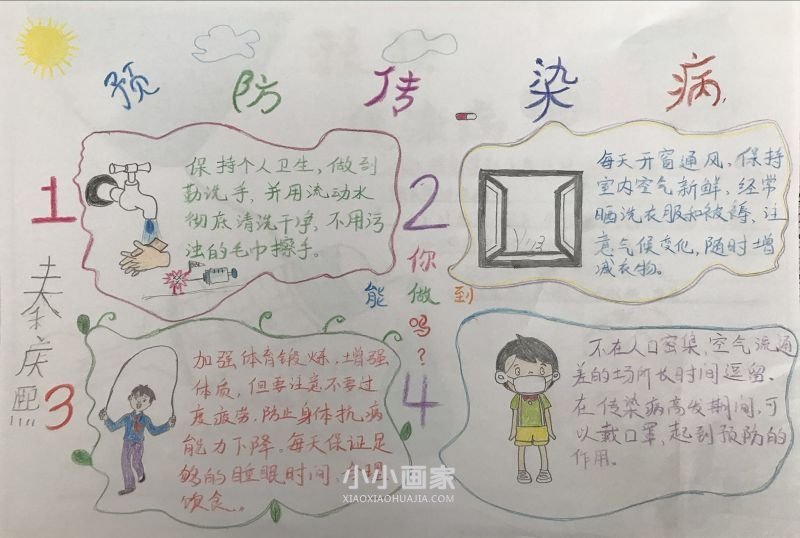 预防传染病
1
保持个人卫生,做到
勤洗手,并用流动水
彻底清洗干净,不用污
浊的毛巾擦手。
2
每天开窗通风,保持
室内空气新鲜,经常
晒洗衣服和被褥,注
意气候变化,随时增
减衣物。
你
能做到
吗?
3
加强体育锻炼,增强
体质,但要注意不要过
度疲劳,防止身体抗病
能力下降。每天保证足
够的睡眠时间,合理
饮食。
4
不在人口密集,空气流通
差的场所长时间逗留。
在传染病高发期间,可
以戴口罩,起到预防的
作用。
秦庆熙
小小画家
XIAOXIAOHUAJIA.COM